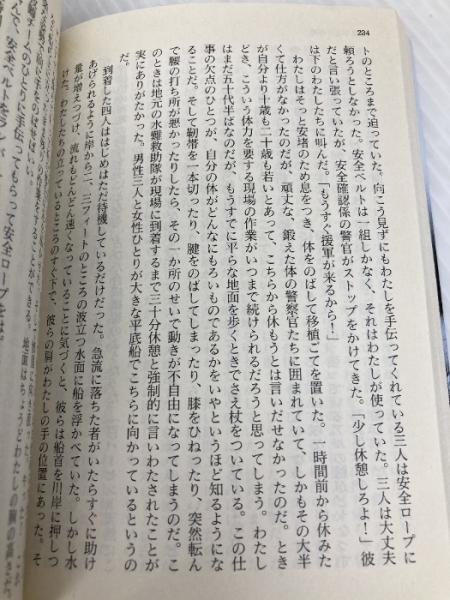 234
トのところまで迫っていた。向こう見ずにもわたしを手伝ってくれている三人は安全ロープに
頼ろうとしなかった。安全ベルトは一組しかなく、それはわたしが使っていた。三人は大丈夫
だと言い張っていたが、安全確認係の警官がストップをかけてきた。「少し休憩しろよ！」彼
は下のわたしたちに叫んだ。「もうすぐ援軍が来るから！」
わたしはそっと安堵のため息をつき、体をのばして移植ごてを置いた。一時間前から休みた
くて仕方がなかったのだが、頑丈な、鍛えた体の警察官たちに囲まれていて、しかもその大半
が自分より十歳も二十歳も若いとあって、こちらから休もうとは言いだせなかったのだ。とき
どき、こういう体力を要する現場の作業がいつまで続けられるだろうと思ってしまう。わたし
はまだ五十代半ばなのだが、もうすでに平らな地面を歩くときでさえ杖をついている。この仕
事の欠点のひとつが、自分の体がどんなにもろいものであるかをいやというほど知るようにな
ることだ。そして靭帯を一本切ったり、腱をのばしてしまったり、膝をひねったり、突然転ん
で腰の打ち所が悪かったりしたら、その一か所のせいで動きが不自由になってしまうのだ。こ
のときは地元の水難救助隊が現場に到着するまで三十分休憩と強制的に言いわたされたことが
実にありがたかった。男性三人と女性ひとりが大きな平底船でこちらに向かっているというの
だ。
到着した四人ははじめはただ待機しているだけだった。急流に落ちた者がいたらすぐに助け
あげられるように岸から二、三フィートのところの波立つ水面に船を浮かべていた。しかし水
量が増えつづけ、流れもどんどん速くなっていることに気づくと、彼らは船首を川岸に押しつ
けた。わたしたちの立っているところのすぐ下で、彼らの胸がわたしの手の位置にあった。そ